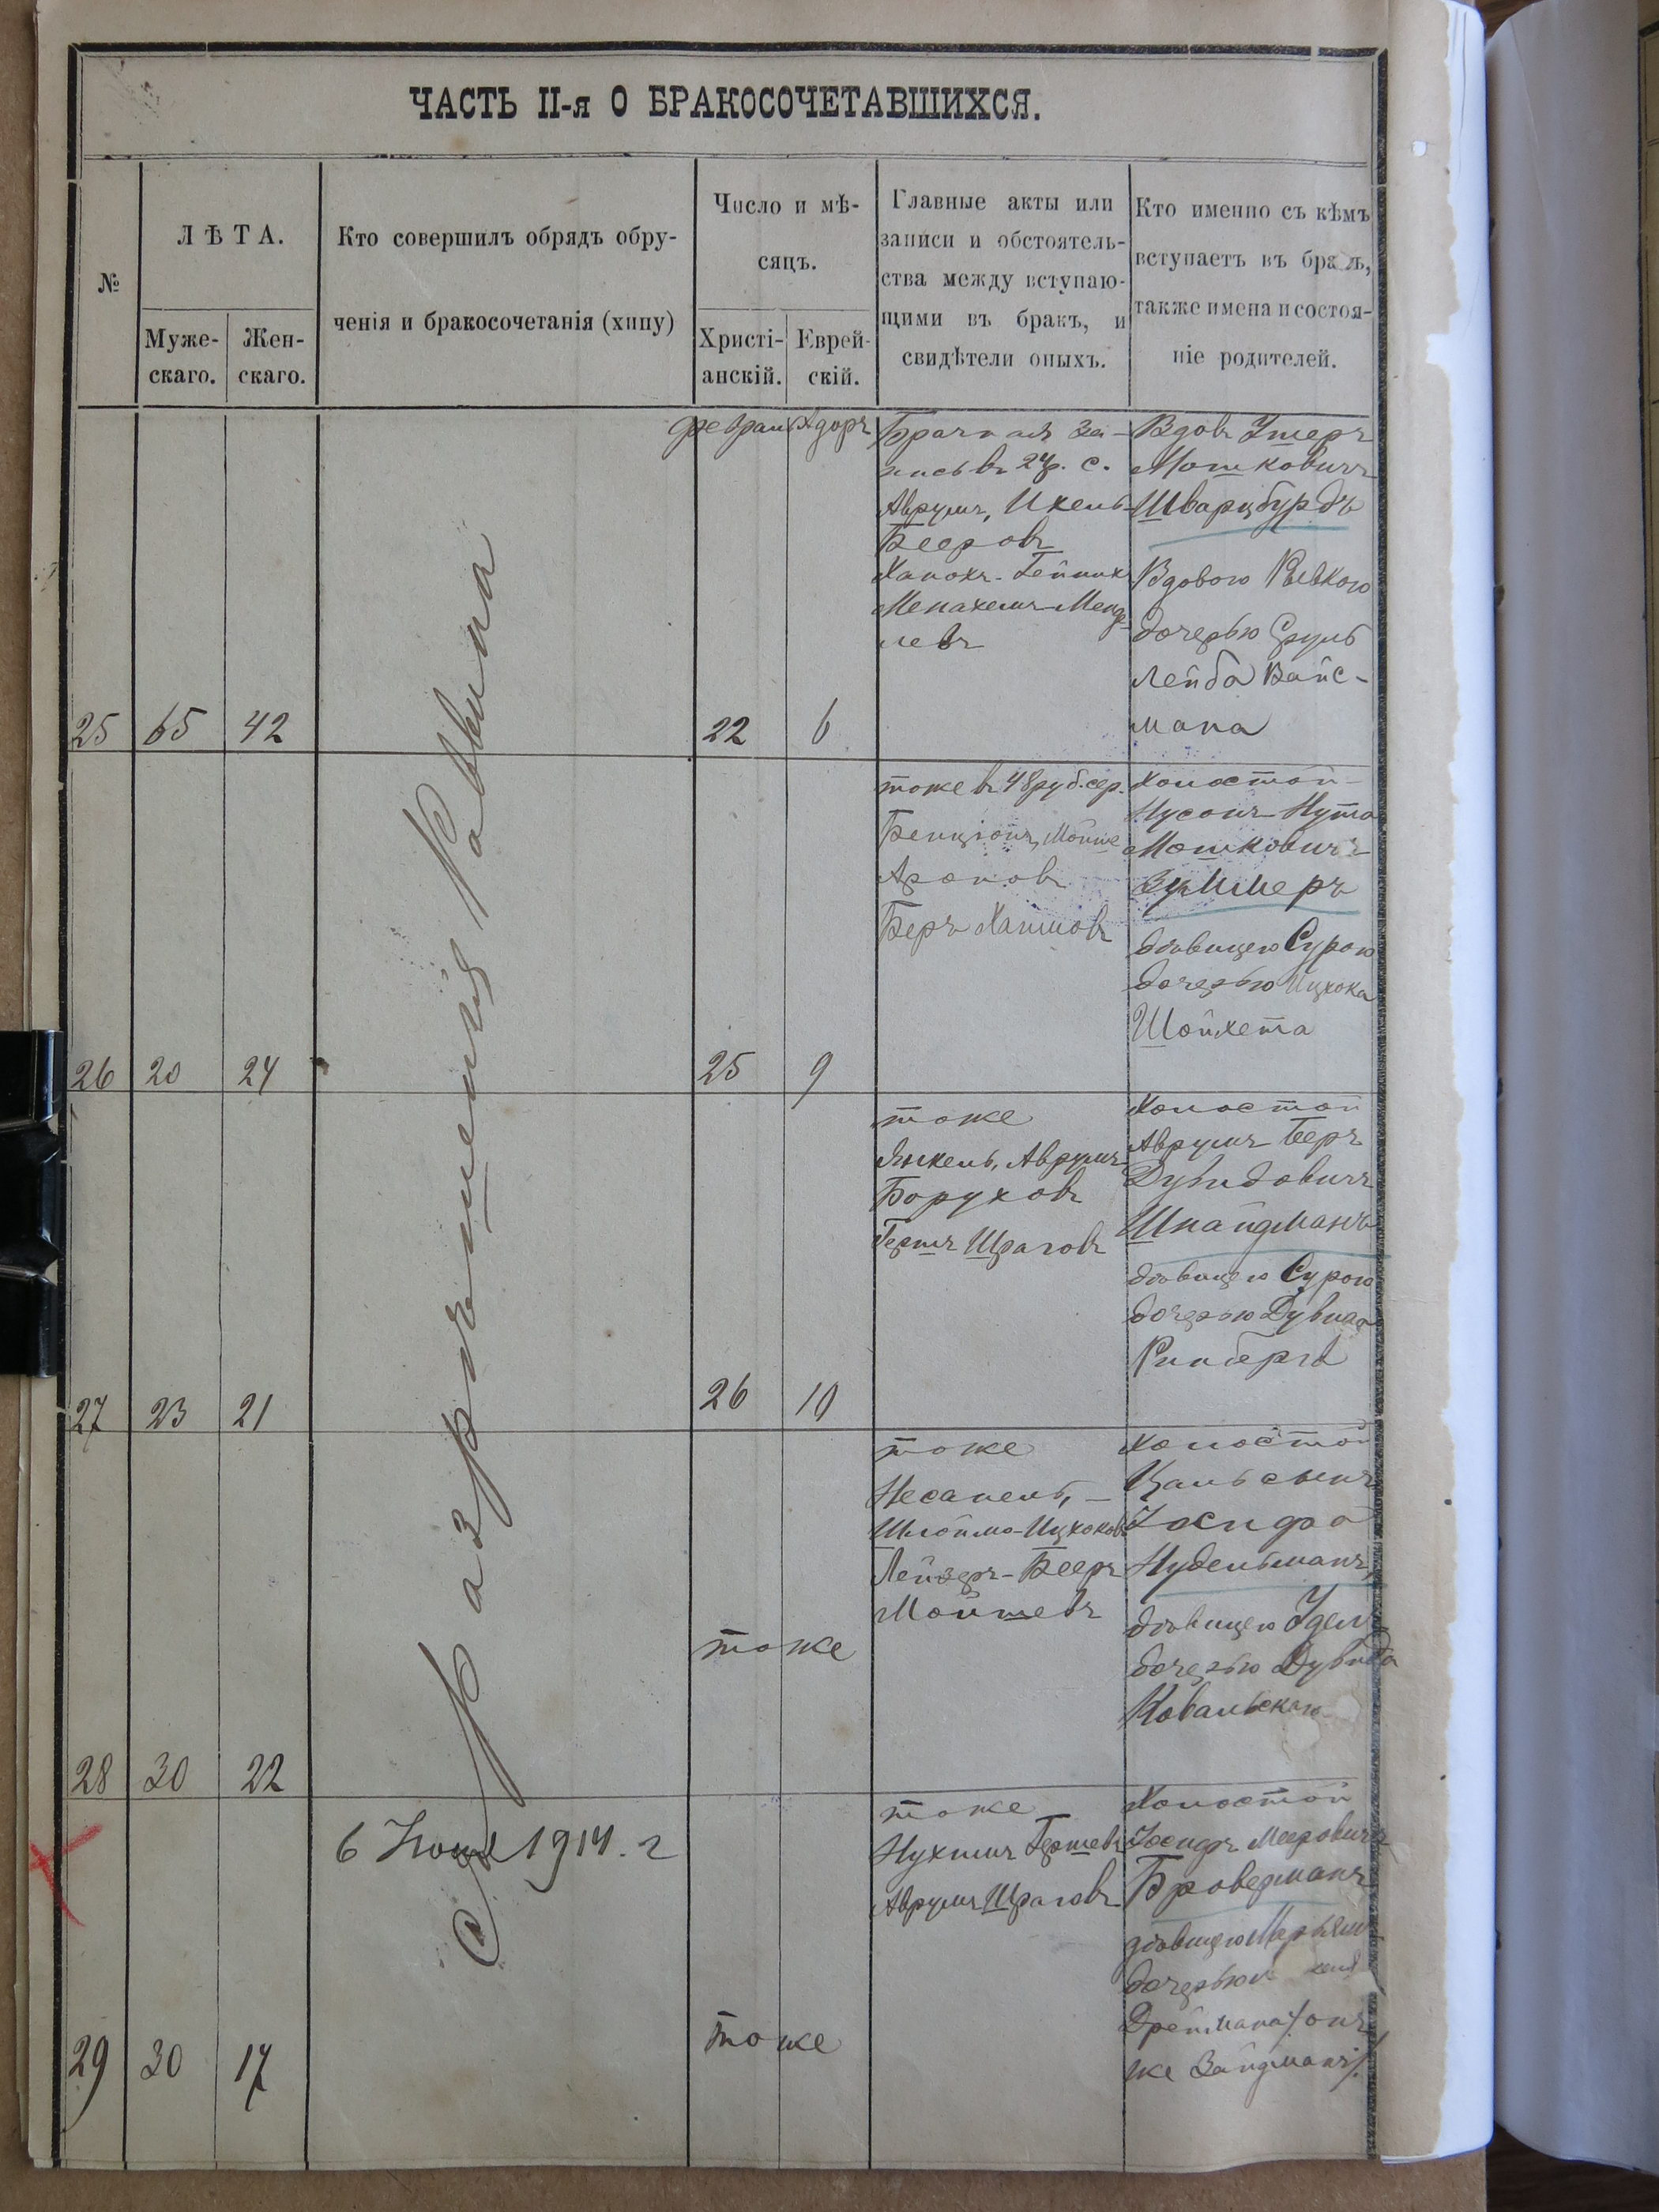 ЧАСТЬ II-я О БРАКОСОЧЕТАВШИХСЯ.
№
ЛѢТА.
Муже-
скаго.
Жен-
скаго.
Кто совершилъ обрядъ обру-
ченія и бракосочетанія (хипу)
Число и мѣ-
сяцъ.
Христі-
анскій.
Еврей-
скій.
Главные акты или
записи и обстоятель-
ства между вступаю-
щими въ бракъ, и
свидѣтели оныхъ.
Кто именно съ кѣмъ
вступаетъ въ бракъ,
также имена и состоя-
ніе родителей.
Съ Разрѣшенія Раввина
25
65
42
Адоръ
22
6
Брачная за-
пись въ 24р. с.
Аврумъ, Ихель
Бееровъ
Ханохъ-Гейнихъ
Менахемъ-Менде-
левъ
Вдовъ Ушеръ
Мошковичъ
Шварцбурдъ
Вдовою Ривкою
дочерью Сруль
Лейба Вайс-
мана
26
20
24
25
9
тоже въ 48 руб. сер.
Бенціонъ, Мойше
Ароновъ
Беръ Хаимовъ
Холостой
Нусонъ-Нута
Мошковичъ
Зуммеръ
дѣвицею Сурою
дочерью Ицхока
Шойхета
27
23
21
26
10
тоже
Янкель, Аврумъ
Боруховъ
Гершъ Шраговъ
Холостой
Аврумъ Беръ
Дувидовичъ
Шнайдманъ
дѣвицею Сурою
дочерью Дувида
Ринберга
28
30
22
тоже
тоже
Несанель, -
Шлойма-Ицхоковъ
Лейзеръ-Бееръ
Мойшевъ
Холостой
Цаль сынъ
Іосифа
Нудельманъ,
дѣвицею
дочерью Дувида
Ковальскаго
29
30
17
6 1914. г
тоже
тоже
Нухимъ Гершевъ
Аврумъ Шраговъ
Холостой
Іосифъ Мееровичъ
Броверманъ
дѣвицею Марьям
дочерью
Дрейтмана /онъ
же Зайдманъ/.